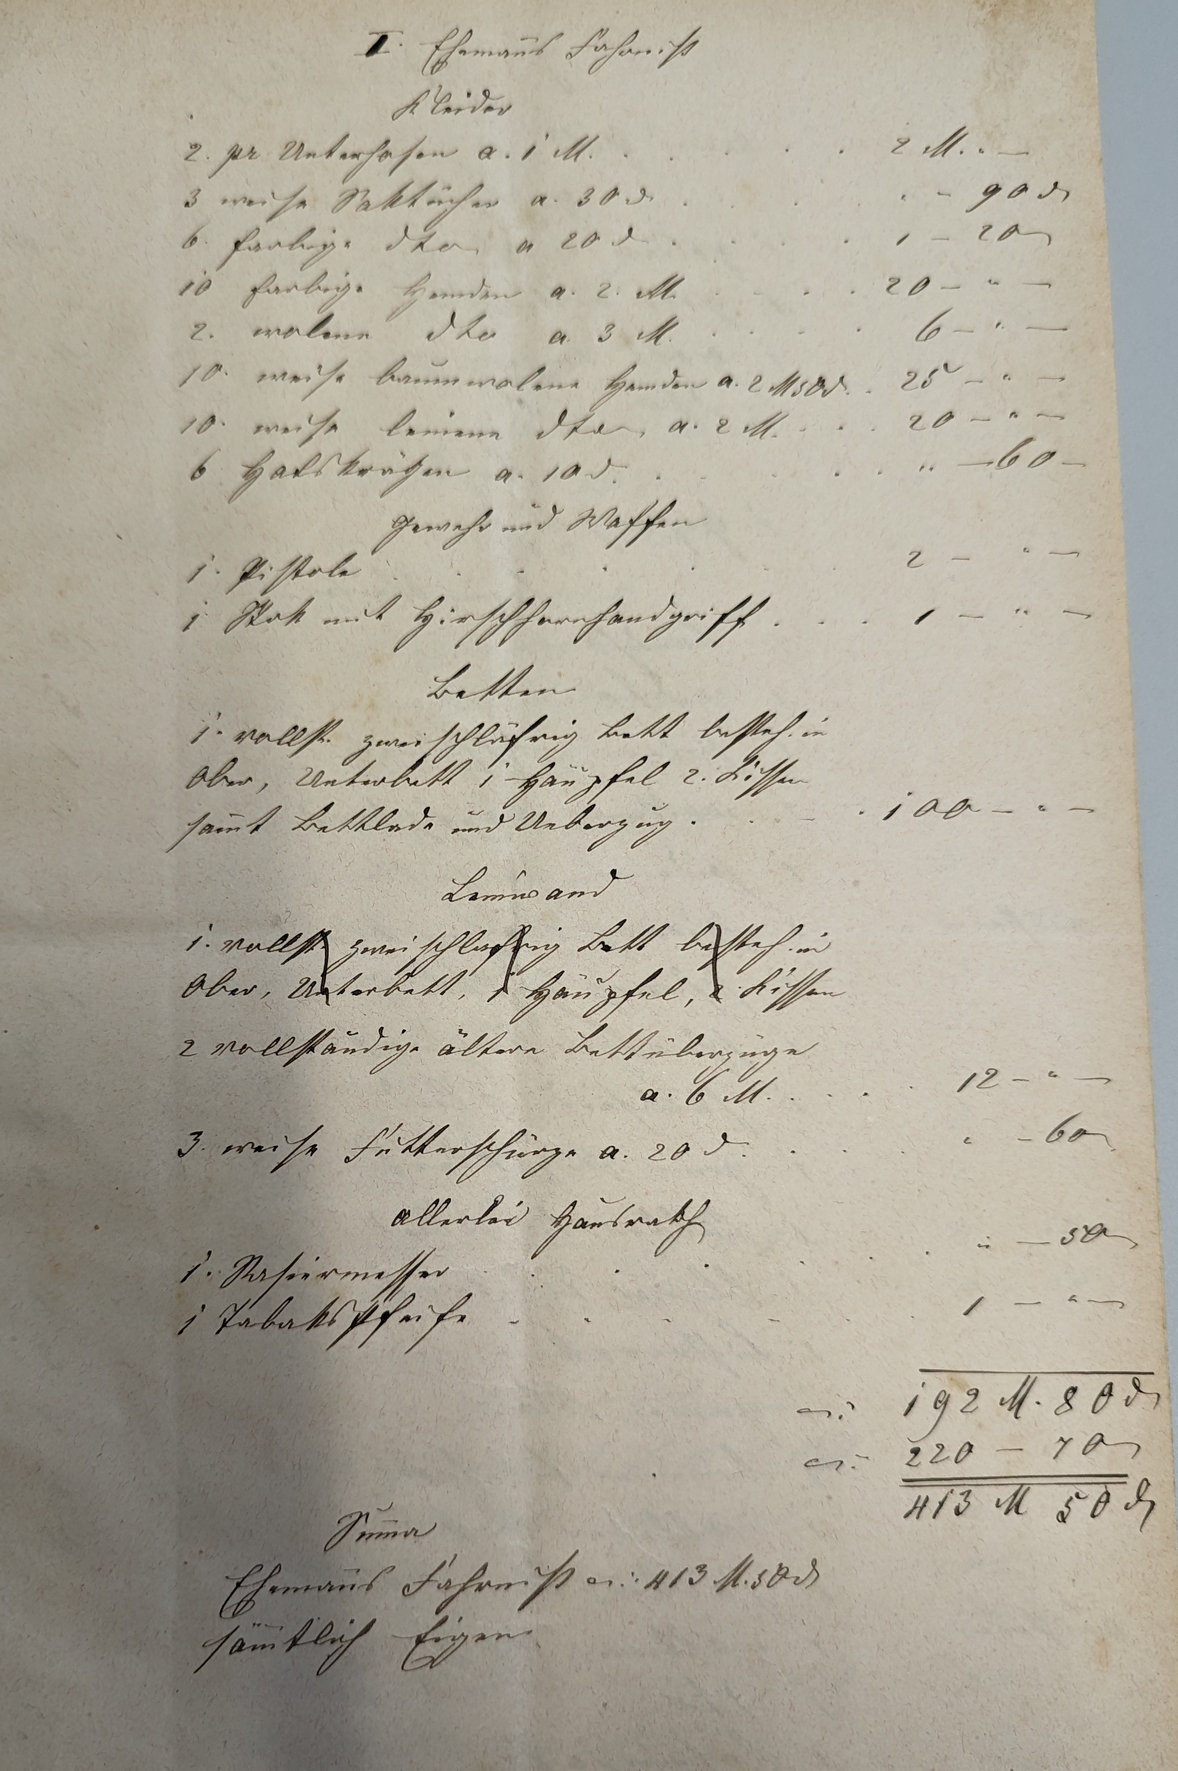 I. Ehemanns Fahrniß
Kleider
2. pr. Unterhosen a. 1 M. . . . . . 2 M. " —
3 weise Saktücher a. 30 d . . . . " – 90 d
6. farbige dto a 20 d . . . . 1 – 20
10 farbige Hemden a. 2. M. . . . . 20 – " —
2. wolene dto a 3 M. . . . . 6 – " —
10. weise baumwolene Hemden a. 2 M 50 d. . 25 – " —
10. weise leinene dto a. 2 M. . . . 20 – " —
6 Halskrägen a. 10 d. . . . . " — 60 –
Gewehr und Waffen
1. Pistole . . . . . 2 – " —
1 Stok mit Hirschhornhandgriff . . . 1 – " —
Betten
1. vollst. zweischläfrig Bett besteh. in
Ober, Unterbett 1 Häupfel 2. Kissen
sammt Bettlade und Ueberzug . . . . 100 – " —
Leinwand
1. vollst. zweischlafrig Bett besteh. in
Ober, Unterbett, 1 Häupfel, 2 Kissen
2 vollständige ältere Bettüberzüge
a. 6 M. . . . 12 – " —
3. weise Futterschürze a. 20 d. . . . " – 60
Allerlei Hausrath
1. Rasiermesser . . . . . " — 50
1 Tabakspfeife . . . . . 1 — " —
192 M. 80 d
220 — 70
413 M 50 d
Summa
Ehemanns Fahrniß 413 M. 50 d
sämtlich Eigen